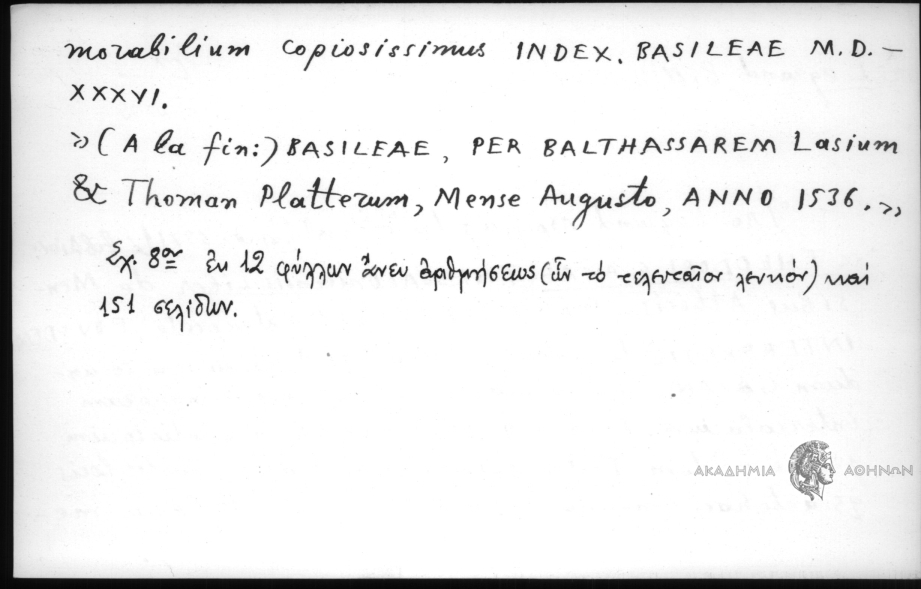 morabilium copiosissimus INDEX. BASILEAE M.D. –
XXXVI.
» (A la fin:) BASILEAE, PER BALTHASSAREM Lasium
& Thoman Platterum, Mense Augusto, ANNO 1536. »
Σχ. 8ον ἐκ 12 φύλλων ἄνευ ἀριθμήσεως (ὧν τὸ τελευταῖον λευκόν) καὶ
151 σελίδων.
ΑΚΑΔΗΜΙΑ ΑΘΗΝΩΝ